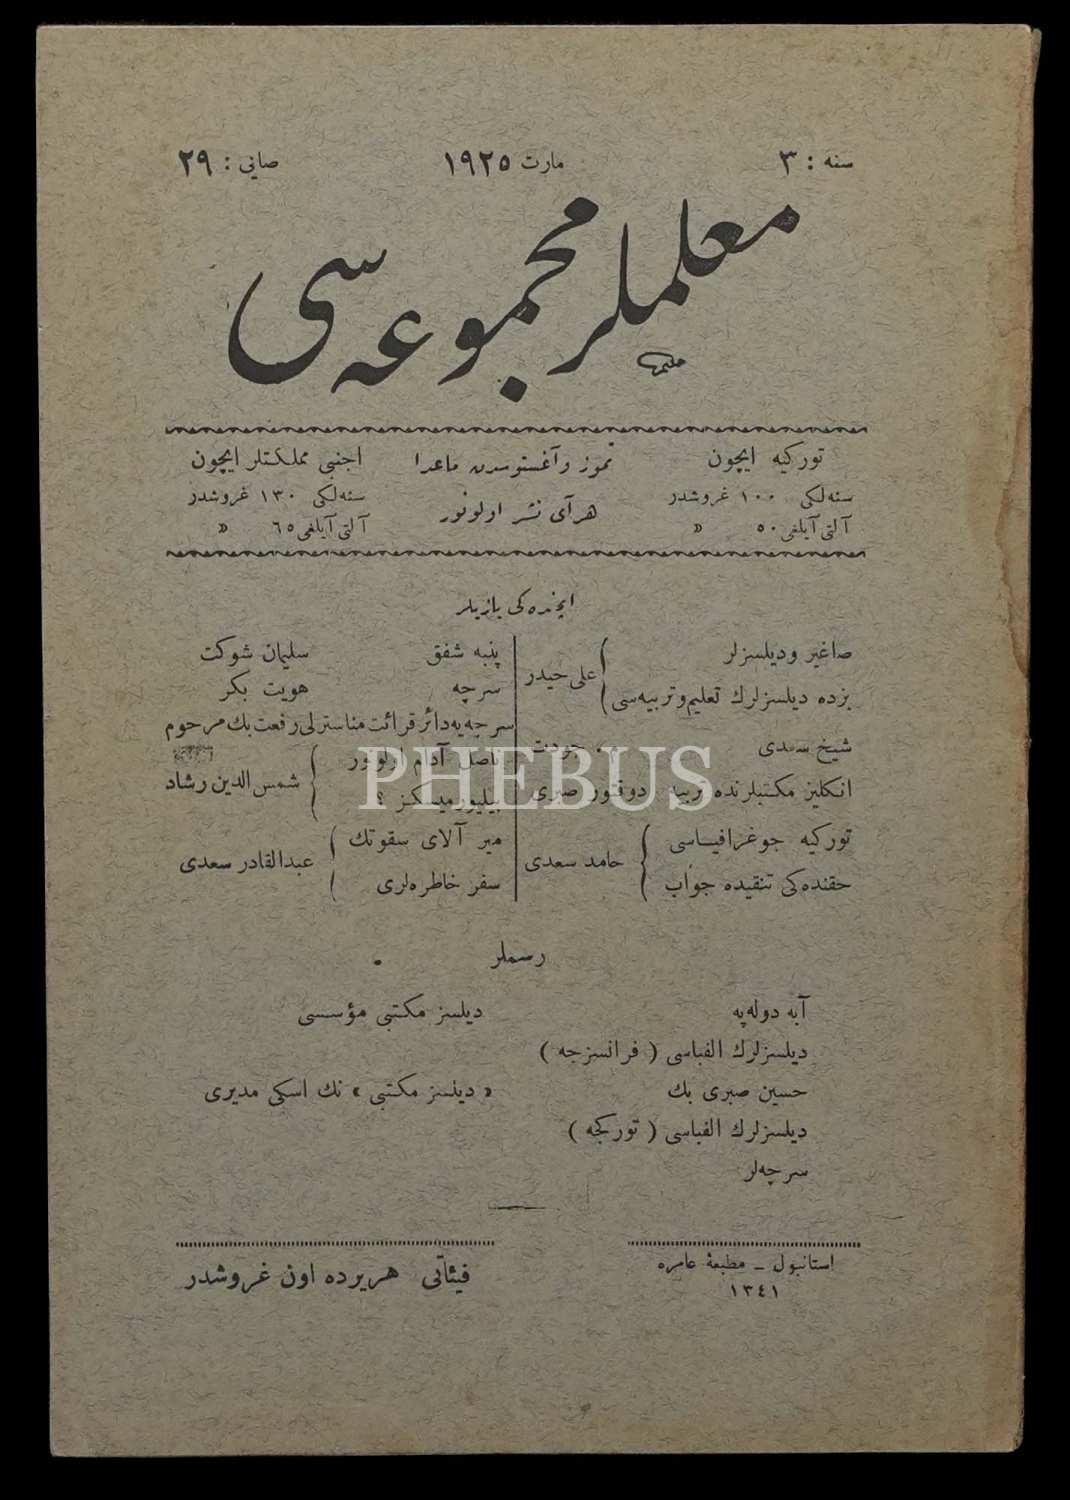 سنه : ٣ مارت ١٩٢٥ صايى : ٢٩
معلملر مجموعه سى
توركيه ايچون
سنه‌لكى ١٠٠ غروشدر
آلتى آيلغى ٥٠ »
تموز و آغستوسدن ماعدا
هر آى نشر اولونور
اجنبى مملكتلر ايچون
سنه‌لكى ١٣٠ غروشدر
آلتى آيلغى ٦٥ »
ايچنده كى يازيلر
صاغير و ديلسزلر
بزده ديلسزلرك تعليم و تربيه‌سى
على حيدر
شيخ سعدى م . جودت
انكليز مكتبلرنده تربيه دوقتور صبرى
توركيه جوغرافياسى
حقنده كى تنقيده جواب
حامد سعدى
پنبه شفق سليمان شوكت
سرچه هويت بكر
سرچه‌يه دائر قرائت مناسترلى رفعت بك مرحوم
ناصل آدام اولونور
بيليورميسكز ؟
شمس الدين رشاد
مير آلاى سقوتك
سفر خاطره‌لرى
عبدالقادر سعدى
رسملر
آبه دوله‌په ديلسز مكتبى مؤسسى
ديلسزلرك الفباسى ( فرانسزجه )
حسين صبرى بك « ديلسز مكتبى » نك اسكى مديرى
ديلسزلرك الفباسى ( توركجه )
سرچه‌لر
استانبول ـ مطبعهٔ عامره
١٣٤١
فيئاتى هر يرده اون غروشدر
PHEBUS